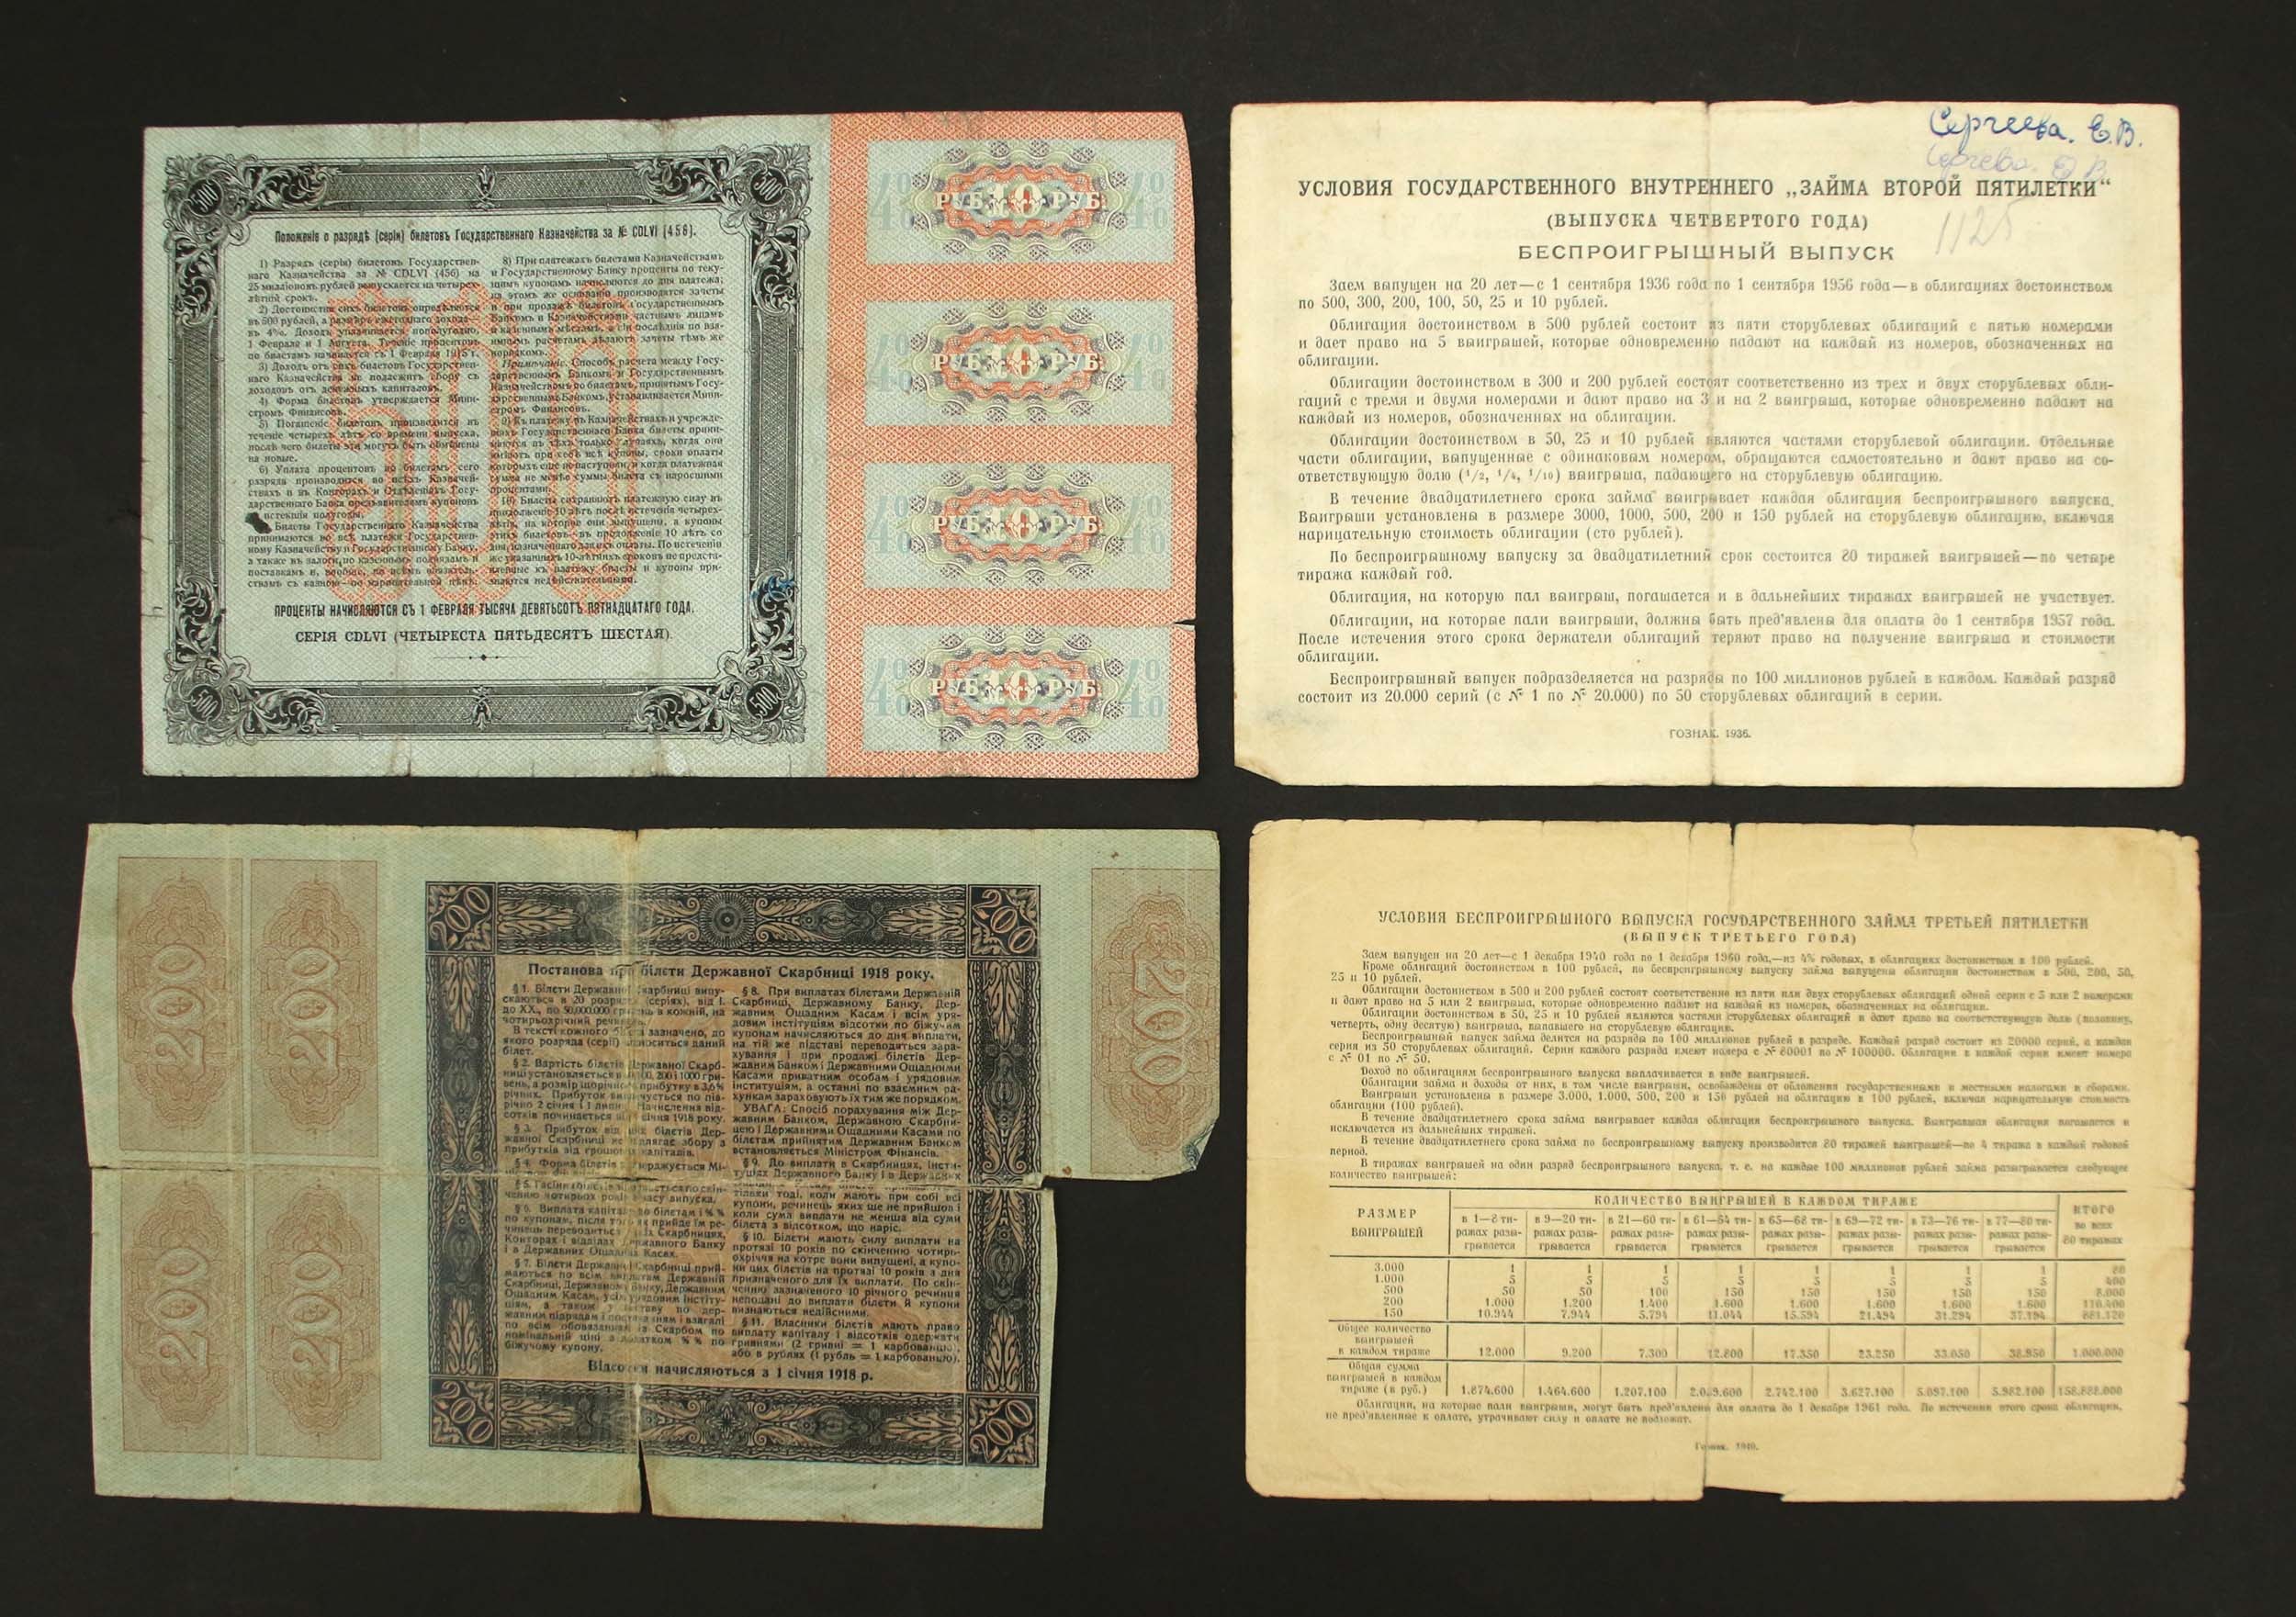 500
500
Положеніе о разрядѣ (серіи) билетовъ Государственнаго Казначейства за № CDLVI (456).
1) Разрядъ (серія) билетовъ Государствен-
наго Казначейства за № CDLVI (456) на
25 милліоновъ рублей выпускается на четырех-
лѣтній срокъ.
2) Достоинство сихъ билетовъ опредѣляется
въ 500 рублей, а размѣръ ежегоднаго дохода—
въ 4%. Доходъ уплачивается полугодно,
1 Февраля и 1 Августа. Теченіе процентовъ
по билетамъ начинается съ 1 Февраля 1915 г.
3) Доходъ отъ сихъ билетовъ Государствен-
наго Казначейства не подлежитъ сбору съ
доходовъ отъ денежныхъ капиталовъ.
4) Форма билетовъ утверждается Мини-
стромъ Финансовъ.
5) Погашеніе билетовъ производится въ
теченіе четырехъ лѣтъ со времени выпуска,
послѣ чего билеты эти могутъ быть обмѣнены
на новые.
6) Уплата процентовъ по билетамъ сего
разряда производится во всѣхъ Казначей-
ствахъ и въ Конторахъ и Отдѣленіяхъ Госу-
дарственнаго Банка предъявителямъ купоновъ
истекшія полугодія.
Билеты Государственнаго Казначейства
принимаются во всѣ платежи Государствен-
ному Казначейству и Государственному Банку,
а также въ залоги по казеннымъ подрядамъ и
поставкамъ и, вообще, по всѣмъ обязатель-
ствамъ съ казною—по нарицательной цѣнѣ.
8) При платежахъ билетами Казначействамъ
и Государственному Банку проценты по теку-
щимъ купонамъ начисляются до дня платежа;
на этомъ же основаніи производятся зачеты
и при продажѣ билетовъ Государственнымъ
Банкомъ и Казначействами частнымъ лицамъ
и казеннымъ мѣстамъ, а сіи послѣднія по вза-
имнымъ расчетамъ дѣлаютъ зачеты тѣмъ же
порядкомъ.
Примѣчаніе. Способъ расчета между Госу-
дарственнымъ Банкомъ и Государственнымъ
Казначействомъ по билетамъ, принятымъ Госу-
дарственнымъ Банкомъ, устанавливается Мини-
стромъ Финансовъ.
9) Къ платежу въ Казначействахъ и учрежде-
ніяхъ Государственнаго Банка билеты прини-
маются въ тѣхъ только случаяхъ, когда они
имѣютъ при себѣ всѣ купоны, сроки оплаты
которыхъ еще не наступили, и когда платежная
сумма не менѣе суммы билета съ наросшими
процентами.
10) Билеты сохраняютъ платежную силу въ
продолженіе 10 лѣтъ послѣ истеченія четырех-
лѣтія, на которое они выпущены, а купоны
этихъ билетовъ—въ продолженіе 10 лѣтъ со
дня, назначеннаго для ихъ оплаты. По истеченіи
же указанныхъ 10-лѣтнихъ сроковъ не предста-
вленные къ платежу билеты и купоны при-
знаются недѣйствительными.
ПРОЦЕНТЫ НАЧИСЛЯЮТСЯ СЪ 1 ФЕВРАЛЯ ТЫСЯЧА ДЕВЯТЬСОТЪ ПЯТНАДЦАТАГО ГОДА.
СЕРІЯ CDLVI (ЧЕТЫРЕСТА ПЯТЬДЕСЯТЪ ШЕСТАЯ).
500
500
РУБ. 10 РУБ.
РУБ. 10 РУБ.
РУБ. 10 РУБ.
РУБ. 10 РУБ.
Сергеева. Е.В.
1125
УСЛОВИЯ ГОСУДАРСТВЕННОГО ВНУТРЕННЕГО „ЗАЙМА ВТОРОЙ ПЯТИЛЕТКИ“
(ВЫПУСКА ЧЕТВЕРТОГО ГОДА)
БЕСПРОИГРЫШНЫЙ ВЫПУСК
Заем выпущен на 20 лет—с 1 сентября 1936 года по 1 сентября 1956 года—в облигациях достоинством
по 500, 300, 200, 100, 50, 25 и 10 рублей.
Облигация достоинством в 500 рублей состоит из пяти сторублевых облигаций с пятью номерами
и дает право на 5 выигрышей, которые одновременно падают на каждый из номеров, обозначенных на
облигации.
Облигации достоинством в 300 и 200 рублей состоят соответственно из трех и двух сторублевых обли-
гаций с тремя и двумя номерами и дают право на 3 и на 2 выигрыша, которые одновременно падают на
каждый из номеров, обозначенных на облигации.
Облигации достоинством в 50, 25 и 10 рублей являются частями сторублевой облигации. Отдельные
части облигации, выпущенные с одинаковым номером, обращаются самостоятельно и дают право на со-
ответствующую долю (1/2, 1/4, 1/10) выигрыша, падающего на сторублевую облигацию.
В течение двадцатилетнего срока займа выигрывает каждая облигация беспроигрышного выпуска.
Выигрыши установлены в размере 3000, 1000, 500, 200 и 150 рублей на сторублевую облигацию, включая
нарицательную стоимость облигации (сто рублей).
По беспроигрышному выпуску за двадцатилетний срок состоится 80 тиражей выигрышей—по четыре
тиража каждый год.
Облигация, на которую пал выигрыш, погашается и в дальнейших тиражах выигрышей не участвует.
Облигации, на которые пали выигрыши, должны быть пред'явлены для оплаты до 1 сентября 1957 года.
После истечения этого срока держатели облигаций теряют право на получение выигрыша и стоимости
облигации.
Беспроигрышный выпуск подразделяется на разряды по 100 миллионов рублей в каждом. Каждый разряд
состоит из 20.000 серий (с № 1 по № 20.000) по 50 сторублевых облигаций в серии.
ГОЗНАК. 1936.
200
200
200
200
200
200
200
Постанова про білєти Державної Скарбниці 1918 року.
§ 1. Білєти Державної Скарбниці випу-
скаються в 20 розрядах (серіях), від I.
до XX., по 50,000.000 гривень в кожній, на
чотирьохрічний речінець.
В тексті кожного зазначено, до
якого розряда (серії) відноситься даний
білєт.
§ 2. Вартість білєтів Державної Скарб-
ниці установляється в 100, 200 і 1000 гри-
вень, а розмір щорічного прибутку в 3,6%
річних. Прибуток виплачується по пів-
річно 2 січня і 1 липня. Начислення від-
сотків починається від 1 січня 1918 року.
§ 3. Прибуток від цих білєтів Дер-
жавної Скарбниці не підлягає збору з
прибутків від грошових капіталів.
§ 4. Форма білєтів стверджується Мі-
чению чотирьох років з часу випуска.
§ 6. Виплата капіталу по білєтам і %%
по купонам, після того як прийде їм ре-
чинець переводиться в усіх Скарбницях,
Конторах і відділах Державного Банку
і в Державних Ощадних Касах.
§ 7. Білєти Державної Скарбниці прий-
маються по всім виплатам Державній
Скарбниці, Державному Банку, Державним
Ощадним Касам, усім урядовим інститу-
ціям, а також у заставу по дер-
жавним підрядам і поставкам і взагалі
по всім обовязанням із Скарбом по
номінальній ціні з додатком %% по
біжучому купону.
§ 8. При виплатах білєтами Державній
Скарбниці, Державному Банку, Дер-
жавним Ощадним Касам і всім уря-
довим інституціям відсотки по біжучим
купонам начисляються до дня виплати,
на тій же підставі переводяться зара-
хування і при продажі білєтів Дер-
жавним Банком і Державними Ощадними
Касами приватним особам і урядовим
інституціям, а останні по взаємним ра-
хункам зараховують їх тим же порядком.
УВАГА: Спосіб порахування між Дер-
жавним Банком, Державною Скарбни-
цею і Державними Ощадними Касами по
білєтам прийнятим Державним Банком
встановляється Міністром Фінансів.
§ 9. До виплати в Скарбницях, інсти-
туціях Державного Банку і в Державних
тільки тоді, коли мають при собі всі
купони, речинець яких ще не прийшов і
коли сума виплати не менша від суми
білєта з відсотком, що наріс.
§ 10. Білєти мають силу виплати на
протязі 10 років по скінченню чотирь-
охріччя на котре вони випущені, а купо-
ни цих білєтів на протязі 10 років з дня
призначеного для їх виплати. По скін-
ченню зазначеного 10 річного речинця
неподані до виплати білєти й купони
визнаються недійсними.
§ 11. Власники білєтів мають право
виплату капіталу і відсотків одержати
гривнями (2 гривні = 1 карбованцю),
або в рублях (1 рубль = 1 карбованцю).
Відсотки начисляються з 1 січня 1918 р.
200
200
УСЛОВИЯ БЕСПРОИГРЫШНОГО ВЫПУСКА ГОСУДАРСТВЕННОГО ЗАЙМА ТРЕТЬЕЙ ПЯТИЛЕТКИ
(ВЫПУСК ТРЕТЬЕГО ГОДА)
Заем выпущен на 20 лет—с 1 декабря 1940 года по 1 декабря 1960 года,—из 4% годовых, в облигациях достоинством в 100 рублей.
Кроме облигаций достоинством в 100 рублей, по беспроигрышному выпуску займа выпущены облигации достоинством в 500, 200, 50,
25 и 10 рублей.
Облигации достоинством в 500 и 200 рублей состоят соответственно из пяти или двух сторублевых облигаций одной серии с 5 или 2 номерами
и дают право на 5 или 2 выигрыша, которые одновременно падают на каждый из номеров, обозначенных на облигации.
Облигации достоинством в 50, 25 и 10 рублей являются частями сторублевых облигаций и дают право на соответствующую долю (половину,
четверть, одну десятую) выигрыша, выпавшего на сторублевую облигацию.
Беспроигрышный выпуск займа делится на разряды по 100 миллионов рублей в разряде. Каждый разряд состоит из 20000 серий, а каждая
серия из 50 сторублевых облигаций. Серии каждого разряда имеют номера с № 80001 по № 100000. Облигации в каждой серии имеют номера
с № 01 по № 50.
Доход по облигациям беспроигрышного выпуска выплачивается в виде выигрышей.
Облигации займа и доходы от них, в том числе выигрыши, освобождены от обложения государственными и местными налогами и сборами.
Выигрыши установлены в размере 3.000, 1.000, 500, 200 и 150 рублей на облигацию в 100 рублей, включая нарицательную стоимость
облигации (100 рублей).
В течение двадцатилетнего срока займа выигрывает каждая облигация беспроигрышного выпуска. Выигравшая облигация погашается и
исключается из дальнейших тиражей.
В течение двадцатилетнего срока займа по беспроигрышному выпуску производится 80 тиражей выигрышей—по 4 тиража в каждый годовой
период.
В тиражах выигрышей на один разряд беспроигрышного выпуска, т. е. на каждые 100 миллионов рублей займа разыгрывается следующее
количество выигрышей:
РАЗМЕР ВЫИГРЫШЕЙ
КОЛИЧЕСТВО ВЫИГРЫШЕЙ В КАЖДОМ ТИРАЖЕ
ИТОГО во всех 80 тиражах
в 1—8 ти- в 9—20 ти- в 21—60 ти- в 61—64 ти- в 65—68 ти- в 69—72 ти- в 73—76 ти- в 77—80 ти-
ражах разы- ражах разы- ражах разы- ражах разы- ражах разы- ражах разы- ражах разы- ражах разы-
грывается грывается грывается грывается грывается грывается грывается грывается
3.000 1 1 1 1 1 1 1 1 80
1.000 5 5 5 5 5 5 5 5 400
500 50 50 100 150 150 150 150 150 8.000
200 1.000 1.200 1.400 1.600 1.600 1.600 1.600 1.600 110.400
150 10.944 7.944 5.794 11.044 15.594 21.494 31.294 37.194 881.120
Общее количество
выигрышей
в каждом тираже 12.000 9.200 7.300 12.800 17.350 23.250 33.050 38.950 1.000.000
Общая сумма
выигрышей в каждом
тираже (в руб.) 1.874.600 1.464.600 1.207.100 2.059.600 2.742.100 3.627.100 5.097.100 5.982.100 158.888.000
Облигации, на которые пали выигрыши, могут быть пред'явлены для оплаты до 1 декабря 1961 года. По истечении этого срока облигации,
не пред'явленные к оплате, утрачивают силу и оплате не подлежат.
Гознак. 1940.